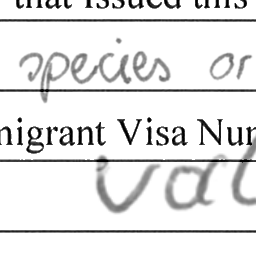 that issued this
species or
migrant Visa Nun
val